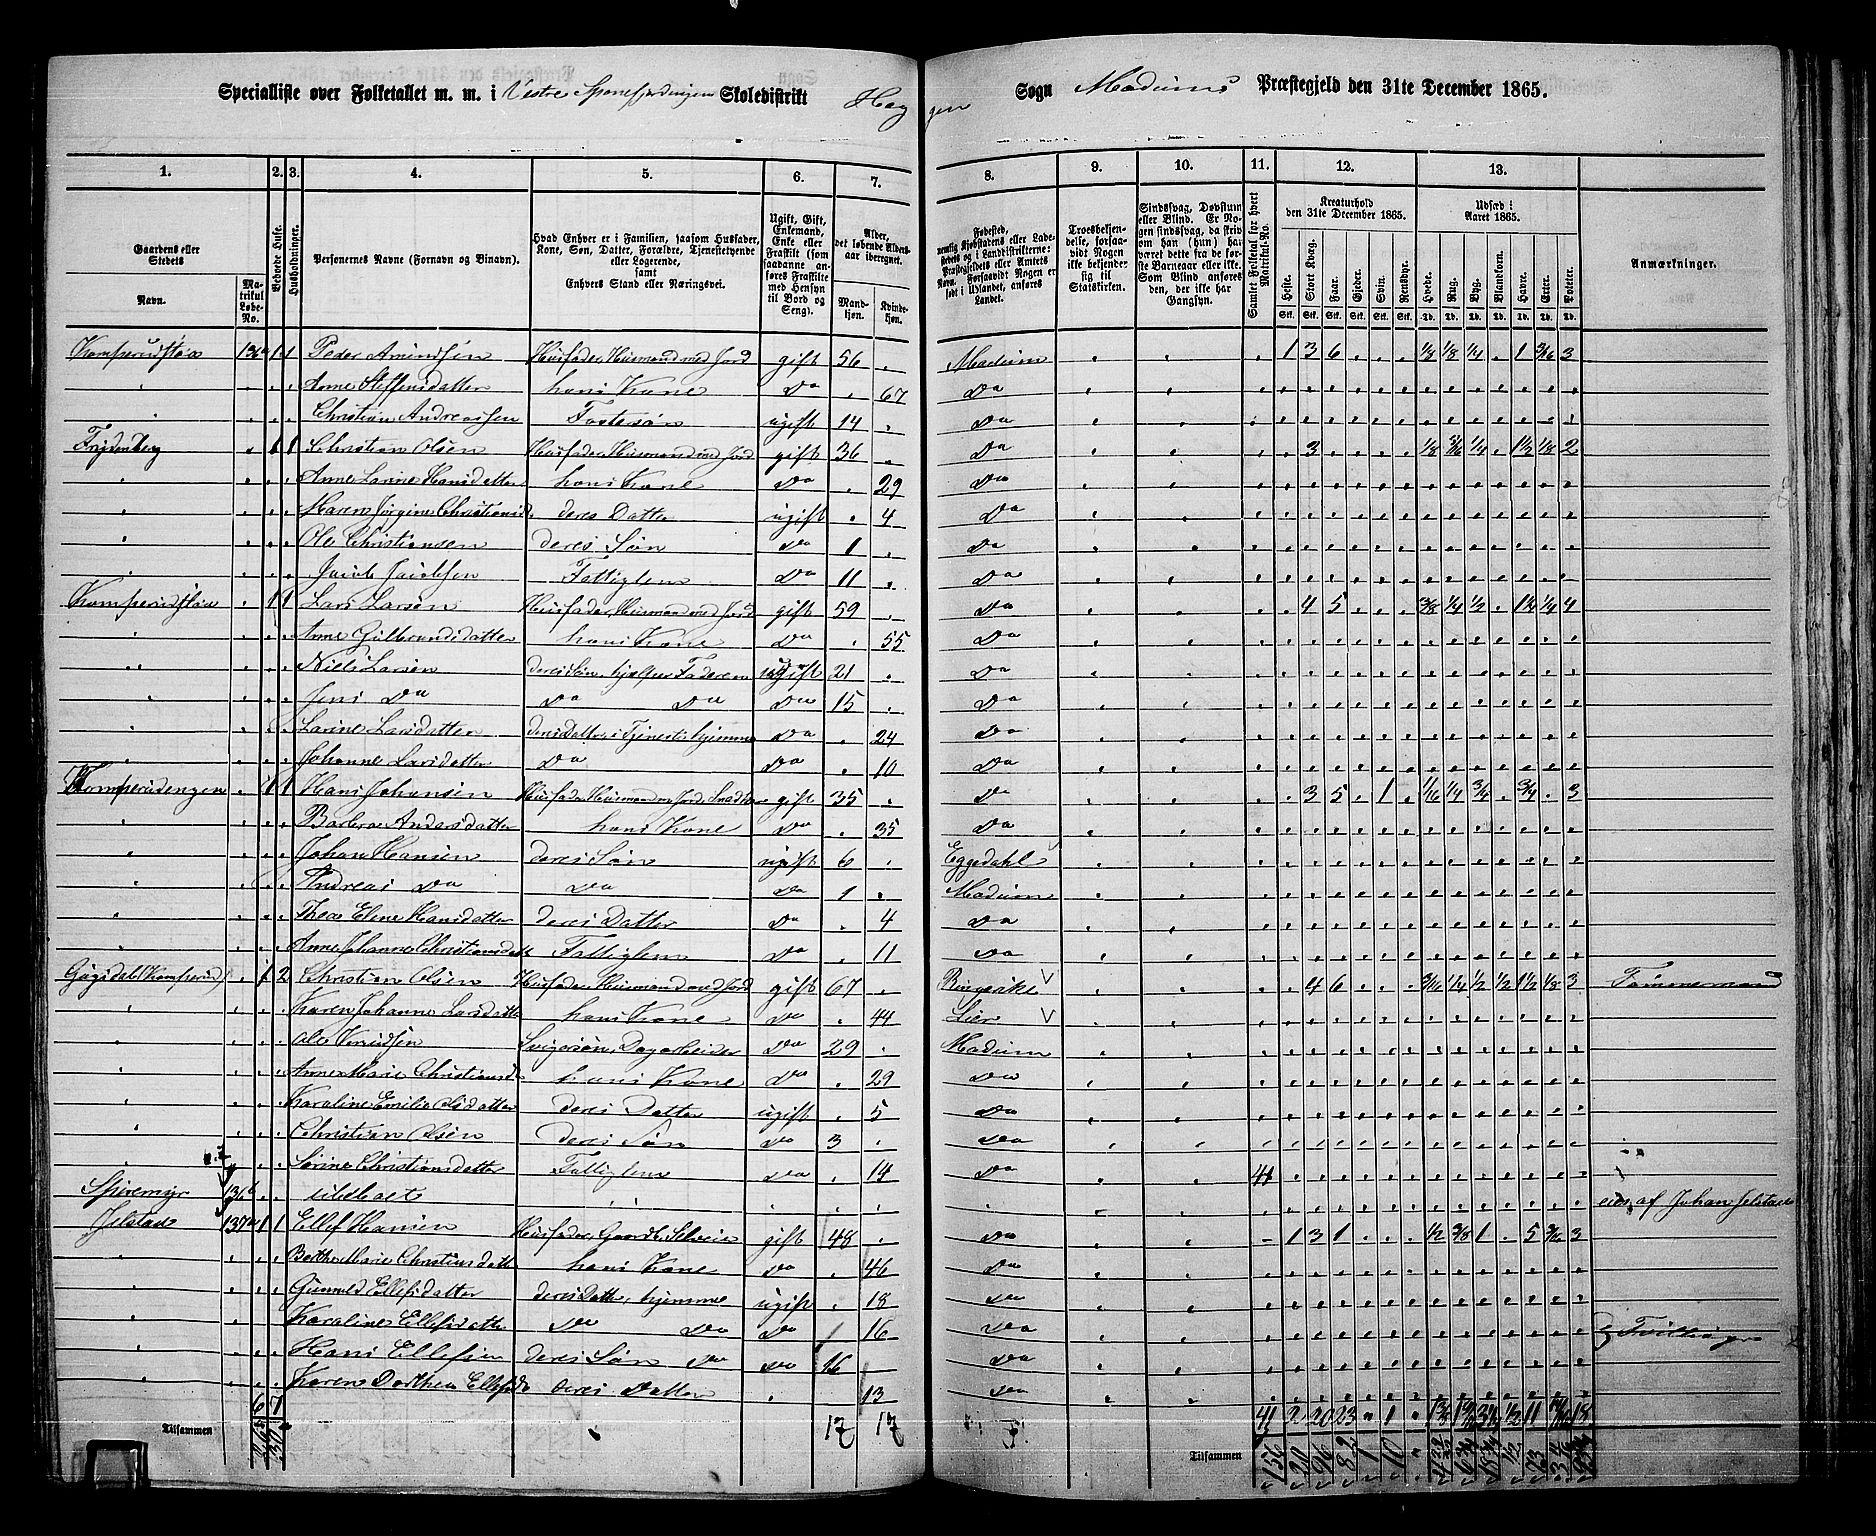 Specialliste over Folketallet m. m. i Vestre Skoledistrikt Hag gen Sogn Modums Præstegjeld den 31te December 1865.
1. 2. 3. 4. 5. 6. 7. 8. 9. 10. 11. 12. 13.
Gaardens eller Stedets
Navn.
Matrikul Løbe-No.
Beboede Huse.
Husholdninger.
Personernes Navne (Fornavn og Binavn).
Hvad Enhver er i Familien, saasom Husfader, Kone, Søn, Datter, Forældre, Tjenestetyende eller Logerende, samt Enhvers Stand eller Næringsvei.
Ugift, Gift, Enkemand, Enke eller Fraskilt (som saadanne anføres Fraskilte med Hensyn til Bord og Seng).
Alder, det løbende Aldersaar iberegnet.
Mandkjøn. Kvindekjøn.
Fødested,
Troesbekjendelse, forsaavidt Nogen ikke bekjender sig til Statskirken.
Sindssvag, Døvstum eller Blind.
Samlet Folketal for hvert Matrikul-No.
Kreaturhold den 31te December 1865.
Heste. Stort Kvæg. Faar. Gjeder. Svin. Rensdyr.
Udsæd i Aaret 1865.
Hvede. Rug. Byg. Blandkorn. Havre. Erter. Poteter.
Anmærkninger.
Komperudstøa 136a 1 1 Peder Amundsen Husfader, Husmand med Jord gift 56 Modum 1 3 6 1/8 1/8 1/4 1 3/16 3
Anne Steffensdatter hans Kone Do 67 Do
Christian Andreassen Fostersøn ugift 14 Do
Frydenberg 1 1 Christian Olsen Husfader, Husmand med Jord gift 36 Do 3 1/8 3/16 1/4 1 1/2 1/8 2
Anne Larine Hansdatter hans Kone Do 29 Do
Maren Jørgine Christiansd. deres Datter ugift 4 Do
Ole Christiansen deres Søn Do 1 Do
Jacob Jacobsen Fattiglem Do 11 Do
Komperudstøa 1 1 Lars Larsen Husfader, Husmand med Jord gift 59 Do 4 5 3/8 1/4 1/2 1 1/2 1/4 4
Anne Gulbrandsdatter hans Kone Do 55 Do
Niels Larsen deres Søn, hjælper Faderen ugift 21 Do
Jens Do Do Do Do 15 Do
Larine Larsdatter deres Datter, i Tjeneste hjemme Do 24 Do
Johanne Larsdatter Do Do 10 Do
Komperudengen 1 1 Hans Johansen Husfader, Husmand m Jord, gift 35 Do 3 5 1 1/16 1/4 3/4 3/4 3
Barbra Andersdatter hans Kone Do 35 Do
Johan Hansen deres Søn ugift 6 Eggedahl
Andreas Do Do Do 1 Modum
Thea Elene Hansdatter deres Datter Do 4 Do
Anne Johanne Christiansdatt Fattiglem Do 11 Do
(Komperud) 1 2 Christian Olsen Husfader, Husmand med Jord gift 67 Ringerike 4 6 3/16 1/4 1/2 1/2 1 1/2 1/8 3 Tømmermand
Karen Johanne Larsdatter hans Kone Do 44 Lier
Ole Knudsen Svigersøn, Dagarbeider Do 29 Modum
Anne Marie Christiansd. hans Kone Do 29 Do
Karoline Emilie Olsdatter deres Datter ugift 5 Do
Christian Olsen deres Søn Do 3 Do
Sørine Christiansdatter Fattiglem Do 14 Do 41
Spiremyr 136b ubeboet eies af Johan Jelstad
Jelstad 137a 1 1 Ellef Hansen Husfader, Gaardb. Selveier gift 48 Do 1 3 1 1/2 3/8 1 5 3/16 3
Berthe Marie Christiansdatt hans Kone Do 46 Do
Gunnild Ellefsdatter deres Datter, hjemme ugift 18 Do
Karoline Ellefsdatter Do Do Do 16 Do Tvillinger
Hans Ellefsen deres Søn Do Do 16 Do
Karen Dorthea Ellefsd deres Datter 13 Do
6 7
Tilsammen 17 17 Tilsammen 41 2 20 23 1